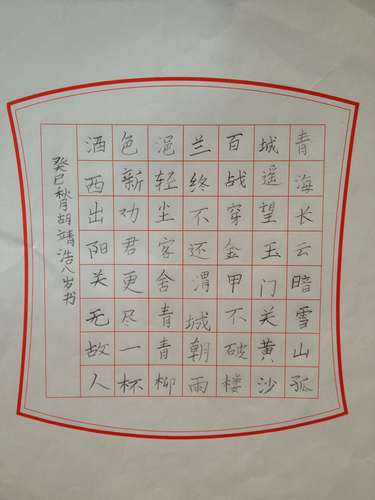 青海长云暗雪山孤
城遥望玉门关黄沙
百战穿金甲不破楼
兰终不还渭城朝雨
浥轻尘客舍青青柳
色新劝君更尽一杯
酒西出阳关无故人
癸巳秋月胡靖浩八岁书